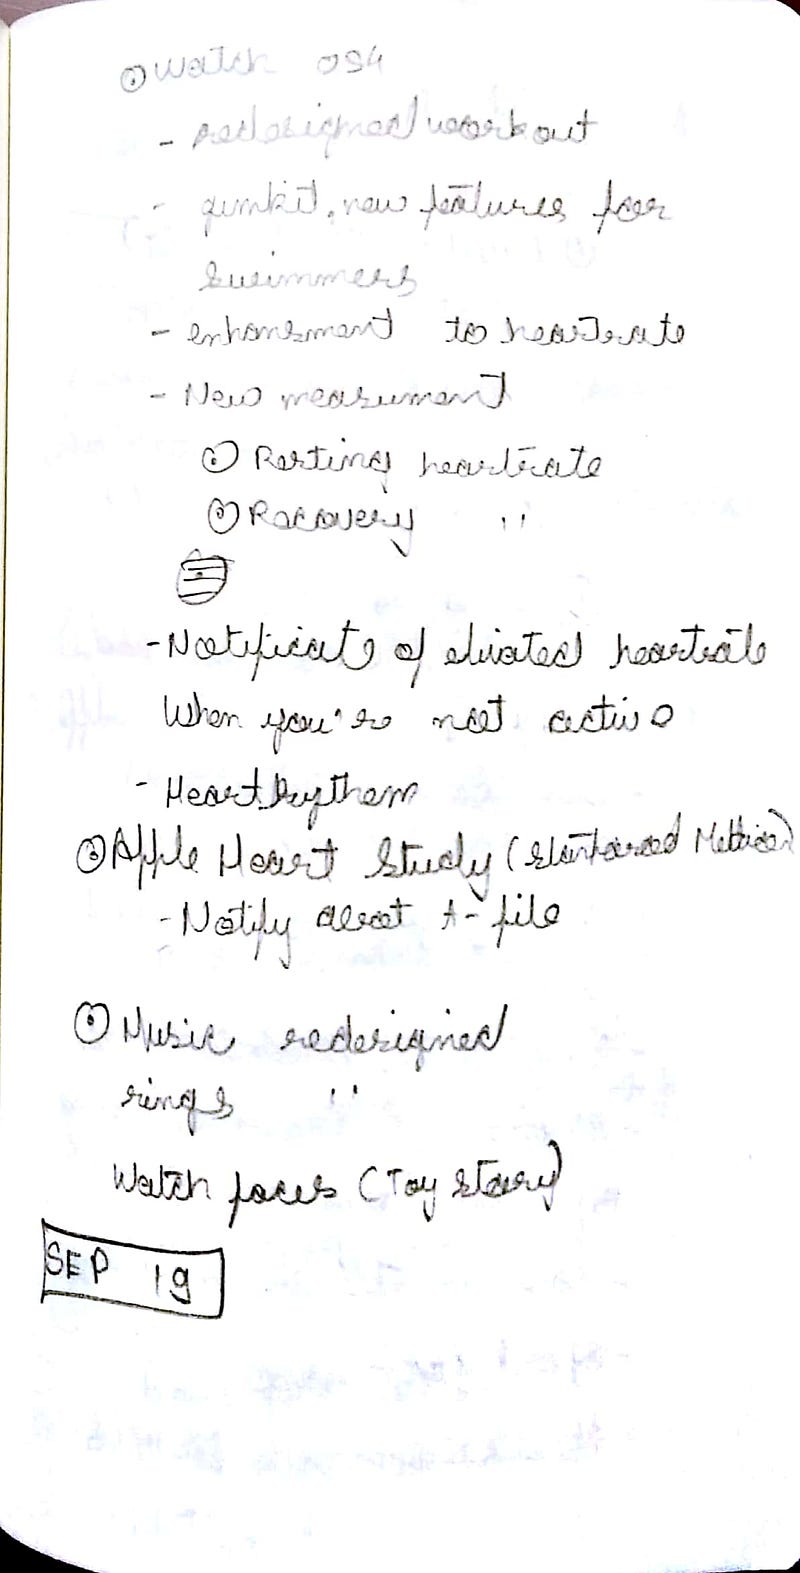 ⊙ Watch OS4
- redesigned workout
- gymkit, new features for
swimmers
- enhansment to heartrate
- New measument
⊙ Resting heartrate
⊙ Recovery "
- Notificate of elivated heartrate
When you're not active
- Heart Rythem
⊙ Apple Heart Study (Stanford
- Notify about A-fib
⊙ Music redesigned
rings "
Watch faces (Toy story)
SEP 19